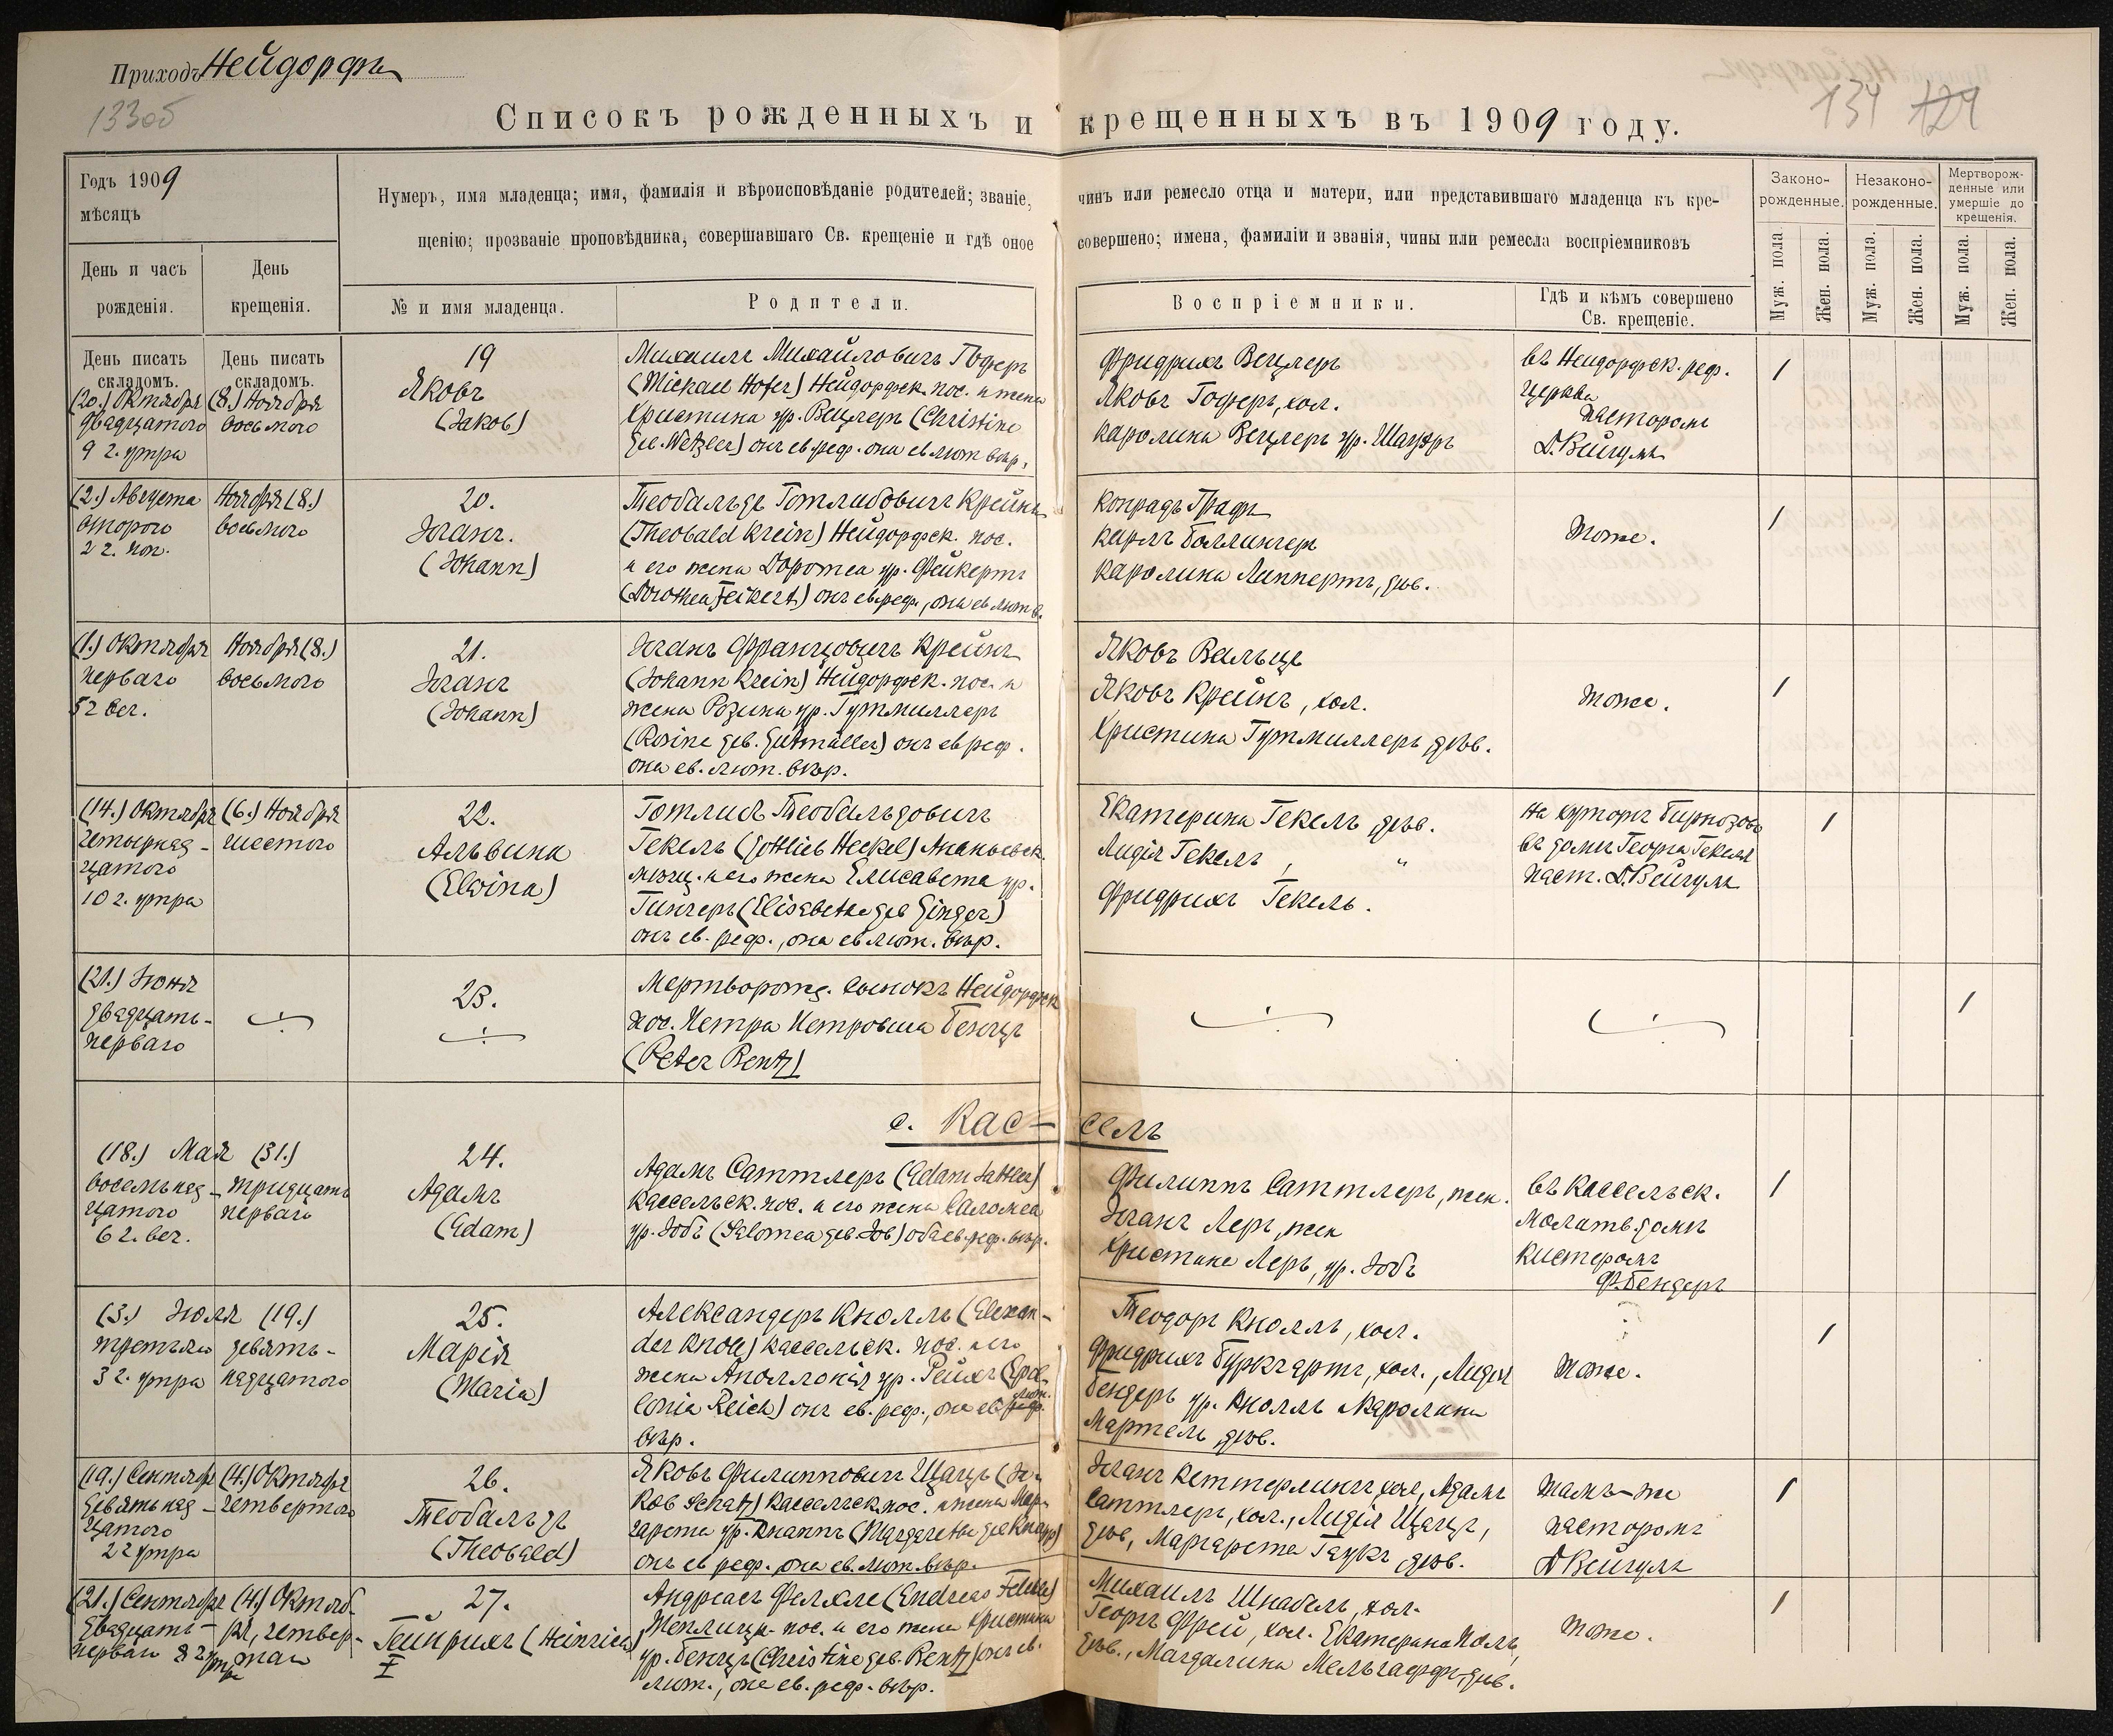 Приходъ Нейдорфъ
133об
134 124
Списокъ рожденныхъ и крещенныхъ въ 1909 году.
Годъ 1909
мѣсяцъ
День и часъ
рожденія.
День
крещенія.
Нумеръ, имя младенца; имя, фамилія и вѣроисповѣданіе родителей; званіе, чинъ или ремесло отца и матери, или представившаго младенца къ кре-
щенію; прозваніе проповѣдника, совершавшаго Св. крещеніе и гдѣ оное совершено; имена, фамиліи и званія, чины или ремесла воспріемниковъ
№ и имя младенца.
Родители.
Воспріемники.
Гдѣ и кѣмъ совершено
Св. крещеніе.
Законо-
рожденные.
Незаконо-
рожденные.
Мертворож-
денные или
умершіе до
крещенія.
Муж. пола.
Жен. пола.
Муж. пола.
Жен. пола.
Муж. пола.
Жен. пола.
День писать
складомъ.
(20.) Октября
двадцатого
9 ч. утра
День писать
складомъ.
(8.) Ноября
восьмого
19
Яковъ
(Jakob)
Михаилъ Михайловичъ Гоферъ
(Michael Hofer) Нейдорфск. пос. и жена
Христина ур. Вецлеръ (Christine
geb. Wetzler) онъ ев. реф. она ев. лют. вѣр.
Фридрихъ Вецлеръ
Яковъ Гоферъ, хол.
Каролина Вецлеръ ур. Шацъ
въ Нейдорфск. реф.
церкви
пасторомъ
Д. Вейгумъ
1
(2.) Августа
второго
2 ч. поп.
Ноября (8.)
восьмого
20.
Іоганъ.
(Johann)
Теобальдъ Готлибовичъ Крейнъ
(Theobald Krein) Нейдорфск. пос.
и его жена Доротеа ур. Фейкертъ
(Dorothea Feikert) онъ ев. реф., она ев. лют. в.
Конрадъ Графъ
Карлъ Боллингеръ
Каролина Липпертъ, дѣв.
Тоже.
1
(1.) Октября
перваго
5 ч. веч.
Ноября (8.)
восьмого
21.
Іоганъ
(Johann)
Іоганъ Францовичъ Крейнъ
(Johann Krein) Нейдорфск. пос. и
жена Розина ур. Гутмиллеръ
(Rosine geb. Gutmüller) онъ ев. реф.
она ев. лют. вѣр.
Яковъ Вельцъ
Яковъ Крейнъ, хол.
Христина Гутмиллеръ, дѣв.
тоже.
1
(14.) Октября
четырнад-
цатого
10 ч. утра
(6.) Ноября
шестого
22.
Альвина
(Elvina)
Готлибъ Теобальдовичъ
Гекель (Gottlieb Heckel) Ананьевск.
мѣщ. и его жена Елисавета ур.
Гингеръ (Elisabethe geb Ginger)
онъ ев. реф., она ев. лют. вѣр.
Екатерина Гекель, дѣв.
Лидія Гекель, "
Фридрихъ Гекель.
На хуторѣ Бирнозово
въ домѣ Георга Гекеля
паст. Д. Вейгумъ
1
(21.) Іюня
двадцать-
перваго
23.
Мертворожд. сынокъ Нейдорфск
пос. Петра Петровича Бенцъ
(Peter Bentz)
1
с. Кас-сель
(18.) Мая (31.)
восемьнад-
цатого
6 ч. веч.
тридцать
перваго
24.
Адамъ
(Adam)
Адамъ Саттлеръ (Adam Sattler)
Кассельск. пос. и его жена Саломеа
ур. Іобъ (Salomea geb. Job) оба ев. реф. вѣр.
Филиппъ Саттлеръ, жен.
Іоганъ Леръ, жен
Христине Леръ, ур. Іобъ
въ Кассельск.
молитв. домѣ
кистеромъ
Ф. Бендеръ
1
(3.) Іюля (19.)
третьяго
3 ч. утра
девять-
надцатого
25.
Марія
(Maria)
Александеръ Кнолль (Alexan-
der Knoll) Кассельск. пос. и его
жена Аполлонія ур. Рейхъ (Apol-
lonia Reich) онъ ев. реф., она ев. лют.
вѣр.
Теодоръ Кнолль, хол.
Фридрихъ Буркгартъ, хол., Лидія
Бендеръ ур. Кнолль и Каролина
Мартель, дѣв.
Тоже.
1
(19.) Сентября
девятьнад-
цатого
2 ч утра
(4.) Октября
четвертого
26.
Теобальдъ
(Theobald)
Яковъ Филипповичъ Щацъ (Ja-
kob Schatz) Кассельск. пос. и жена Мар-
гарета ур. Кнаппъ (Margarethe geb Knapp)
онъ ев реф. она ев. лют. вѣр.
Іоганъ Кеттерлингъ, хол, Адамъ
Саттлеръ, хол., Лидія Щацъ,
дѣв, Маргарета Гаукъ, дѣв.
Тамъ-же
пасторомъ
Д Вейгумъ
1
(21.) Сентября
двадцать-
перваго 8 ч утра
(4.) Октяб-
ря, четвер-
таго
27.
Гейнрихъ (Heinrich)
Андреасъ Фелкле (Andreas Felkle)
Теплицк. пос. и его жена Христина
ур. Бенцъ (Christine geb. Bentz) онъ ев.
лют., она ев. реф. вѣр.
Михаилъ Шнабель, хол.
Георгъ Фрей, хол. Екатерина Поль,
дѣв., Магдалина Мельгаффъ, дѣв.
Тоже.
1